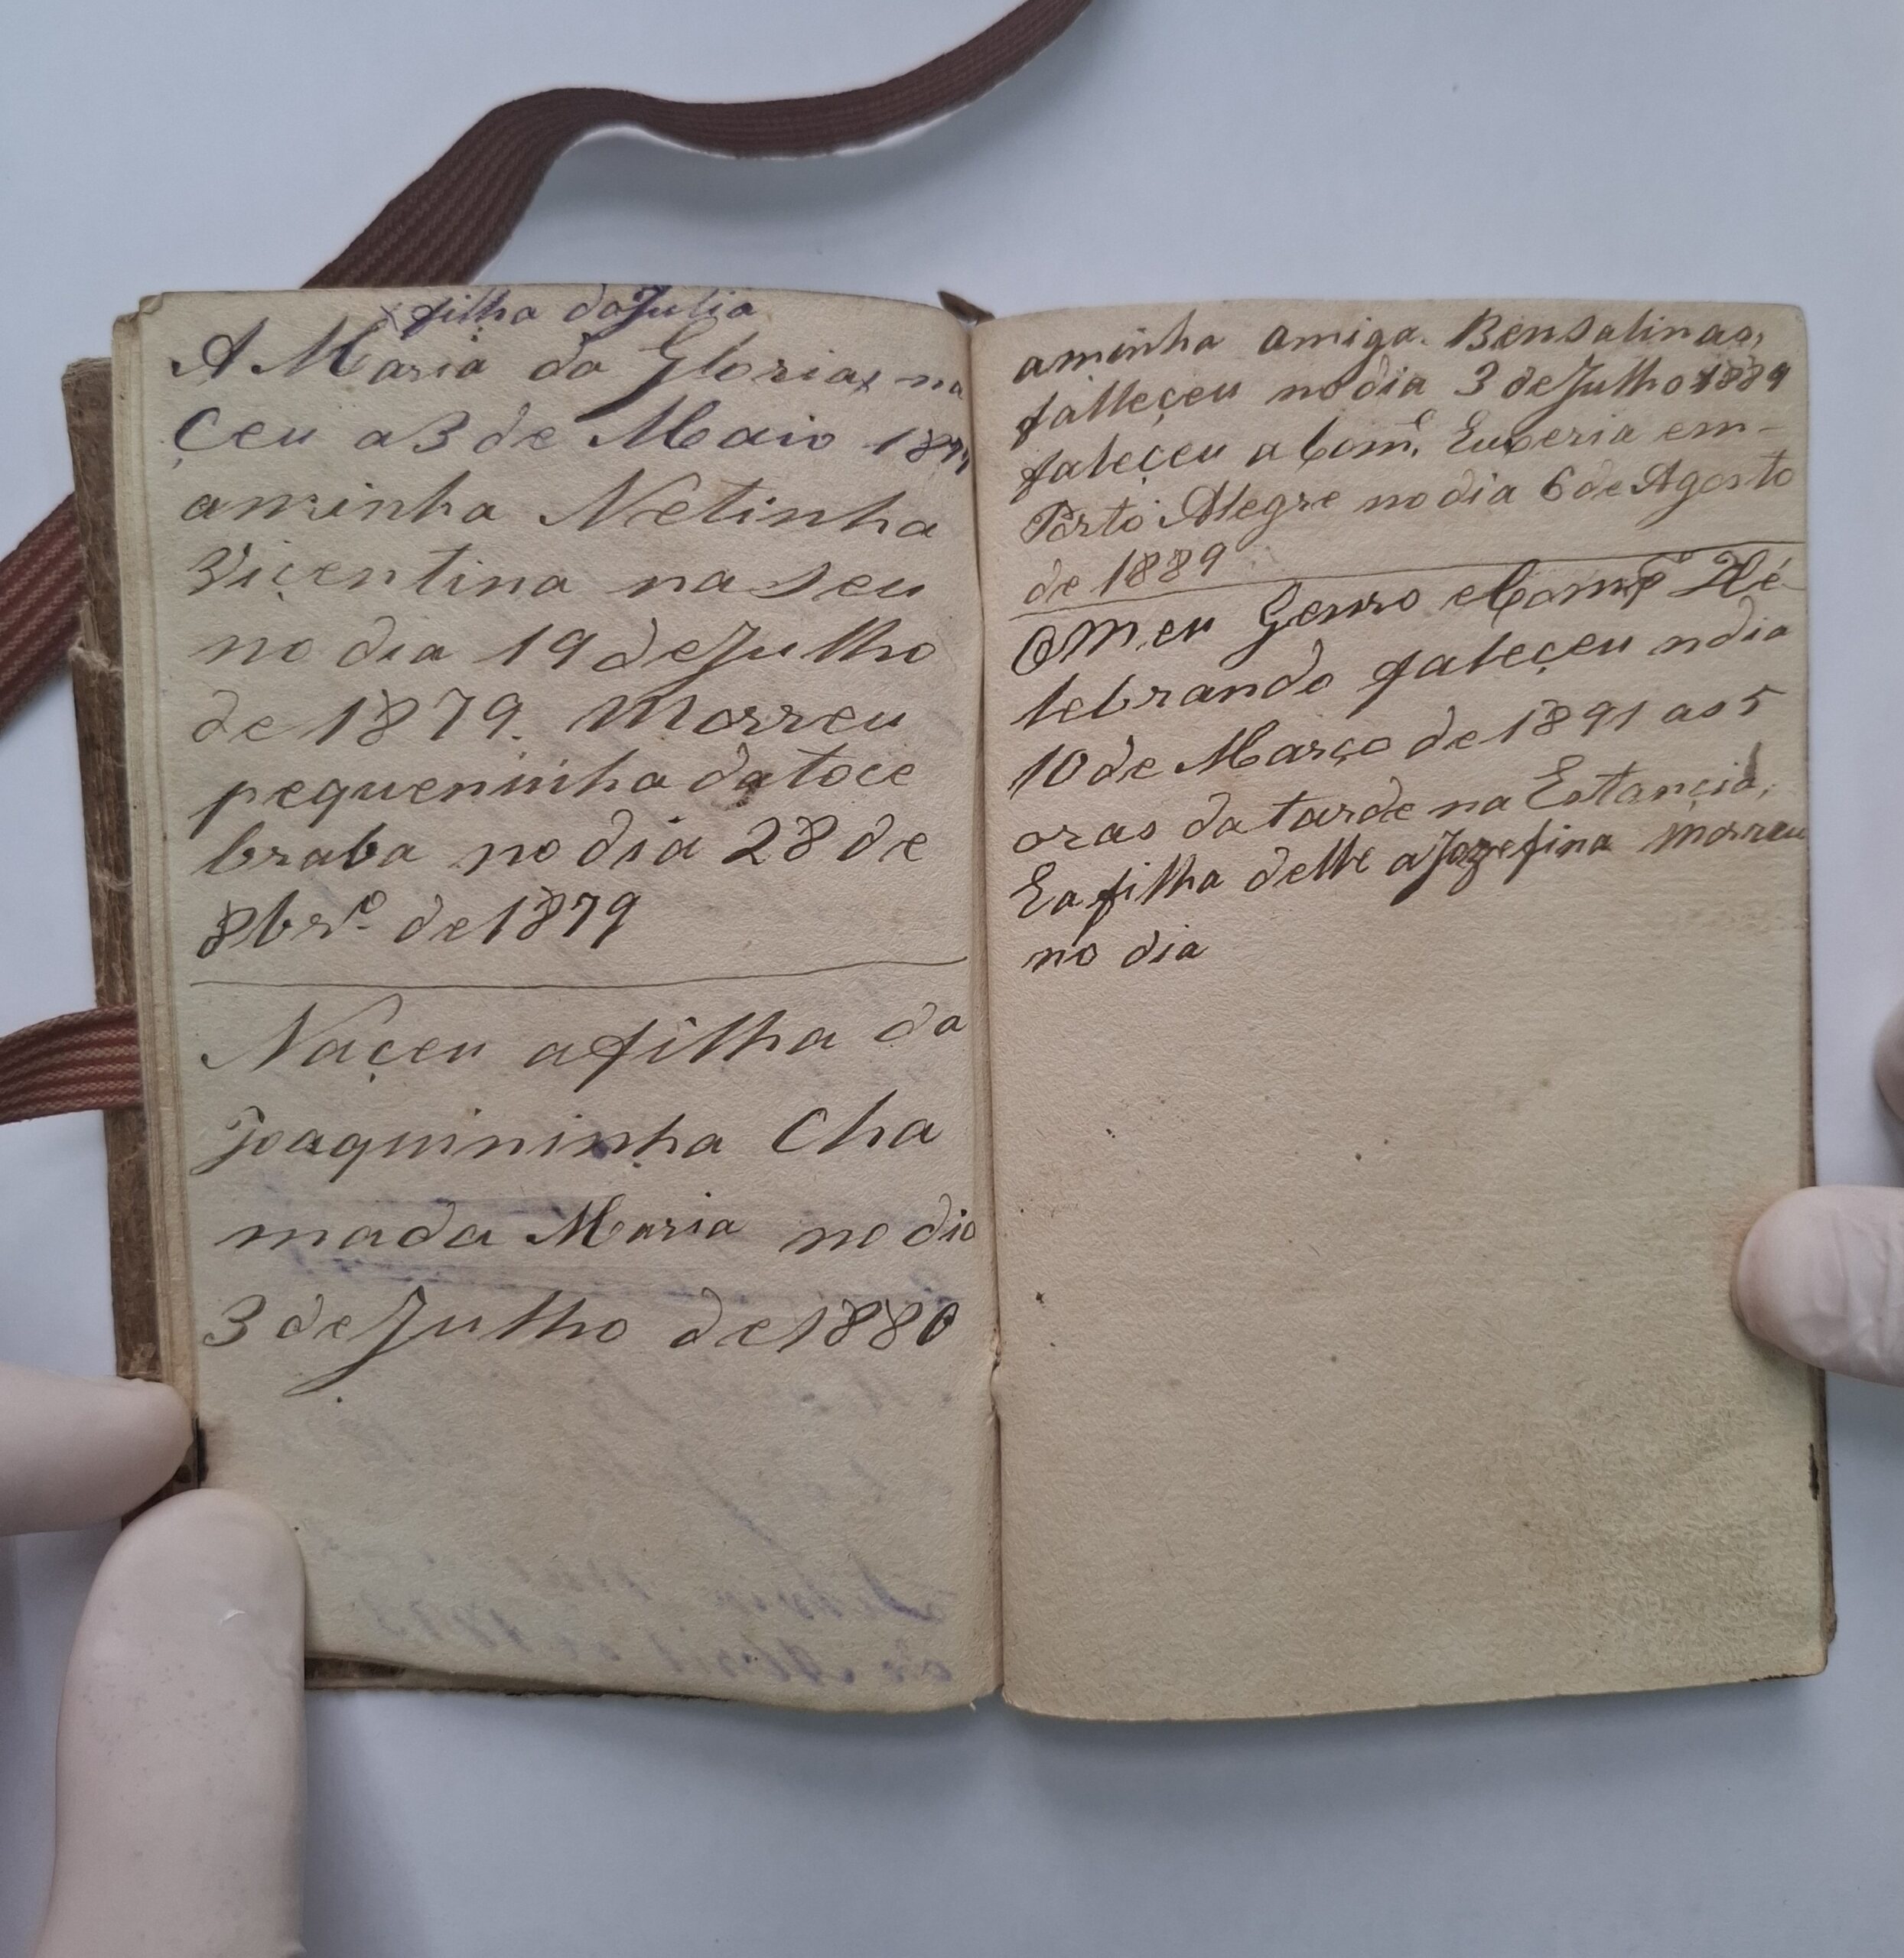 x filha da Julia
A Maria da Gloria x na
çeu a 3 de Maio
aminha Netinha
Viçentina naseu
no dia 19 de Julho
de 1879. Morreu
pequeninha da toce
braba no dia 28 de
8brº de 1879
Naçeu afilha da
Joaquininha Cha
mada Maria no dia
3 de Julho de 1880
aminha amiga. Bensalinao,
falleçeu no dia 3 de Julho 1889
faleçeu a Comᵉ. Euberia em-
Porto Alegre no dia 6 de Agosto
de 1889
O Meu Genro e Compᵉ Hé
lebrando faleçeu ndia
10 de Março de 1891 as 5
oras da tarde na Estançia,
E a filha delle a Jozefina morreu
no dia